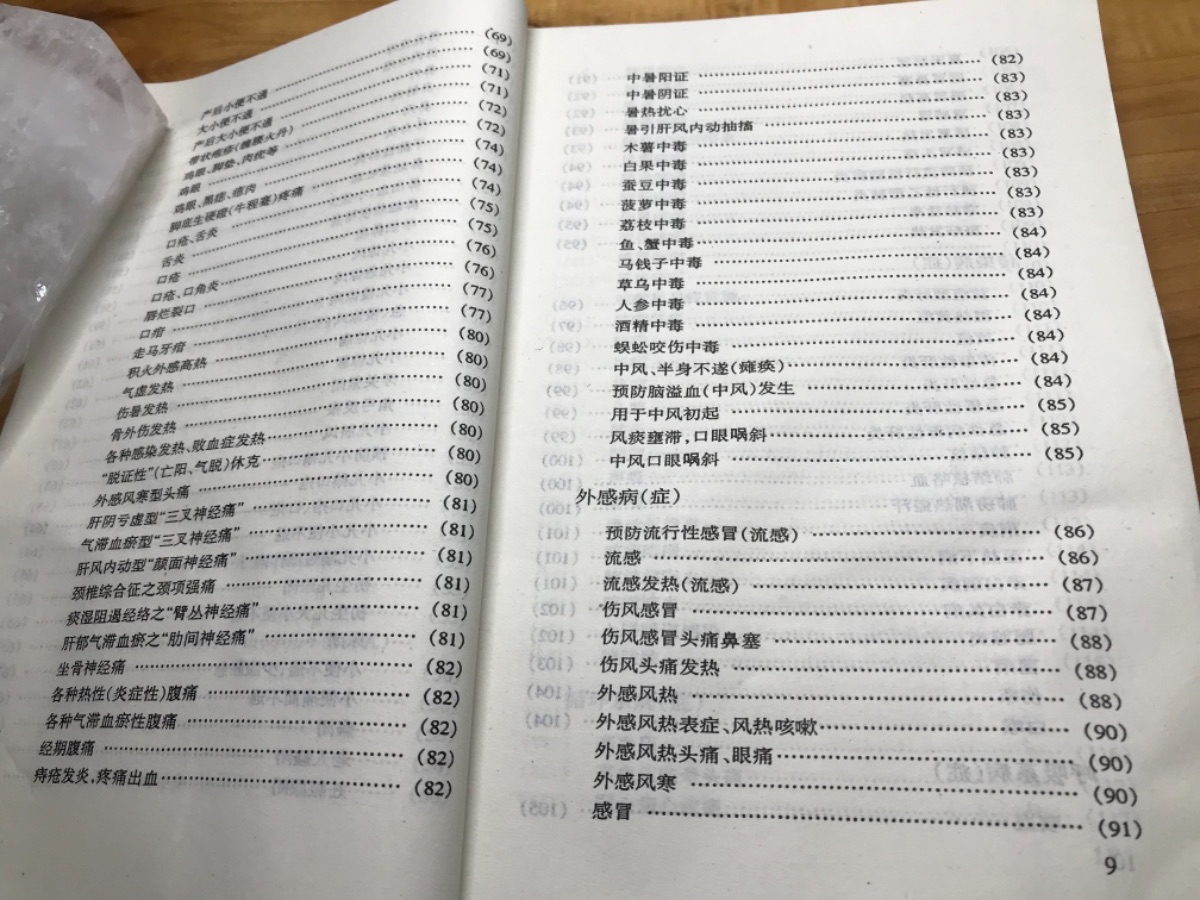 产后小便不通 (69)
大小便不通 (69)
产后大小便不通 (71)
带状疱疹(缠腰火丹) (71)
鸡眼、脚垫、肉疣等 (72)
鸡眼 (72)
鸡眼、黑痣、瘜肉 (74)
脚底生硬磴(牛程蹇)疼痛 (74)
口疮、舌炎 (74)
舌炎 (75)
口疮 (75)
口疮、口角炎 (76)
唇烂裂口 (76)
口疳 (77)
走马牙疳 (77)
积火外感高热 (80)
气虚发热 (80)
伤暑发热 (80)
骨外伤发热 (80)
各种感染发热、败血症发热 (80)
“脱证性”(亡阳、气脱)休克 (80)
外感风寒型头痛 (80)
肝阴亏虚型“三叉神经痛” (81)
气滞血瘀型“三叉神经痛” (81)
肝风内动型“颜面神经痛” (81)
颈椎综合征之颈项强痛 (81)
痰湿阻遏经络之“臂丛神经痛” (81)
肝郁气滞血瘀之“肋间神经痛” (81)
坐骨神经痛 (82)
各种热性(炎症性)腹痛 (82)
各种气滞血瘀性腹痛 (82)
经期腹痛 (82)
痔疮发炎,疼痛出血 (82)
中暑阳证 (82)
中暑阴证 (83)
暑热扰心 (83)
暑引肝风内动抽搐 (83)
木薯中毒 (83)
白果中毒 (83)
蚕豆中毒 (83)
菠萝中毒 (83)
荔枝中毒 (83)
鱼、蟹中毒 (84)
马钱子中毒 (84)
草乌中毒 (84)
人参中毒 (84)
酒精中毒 (84)
蜈蚣咬伤中毒 (84)
中风、半身不遂(瘫痪) (84)
预防脑溢血(中风)发生 (84)
用于中风初起 (85)
风痰壅滞,口眼㖞斜 (85)
中风口眼㖞斜 (85)
外感病(症)
预防流行性感冒(流感) (86)
流感 (86)
流感发热(流感) (87)
伤风感冒 (87)
伤风感冒头痛鼻塞 (88)
伤风头痛发热 (88)
外感风热 (88)
外感风热表症、风热咳嗽 (90)
外感风热头痛、眼痛 (90)
外感风寒 (90)
感冒 (91)
9